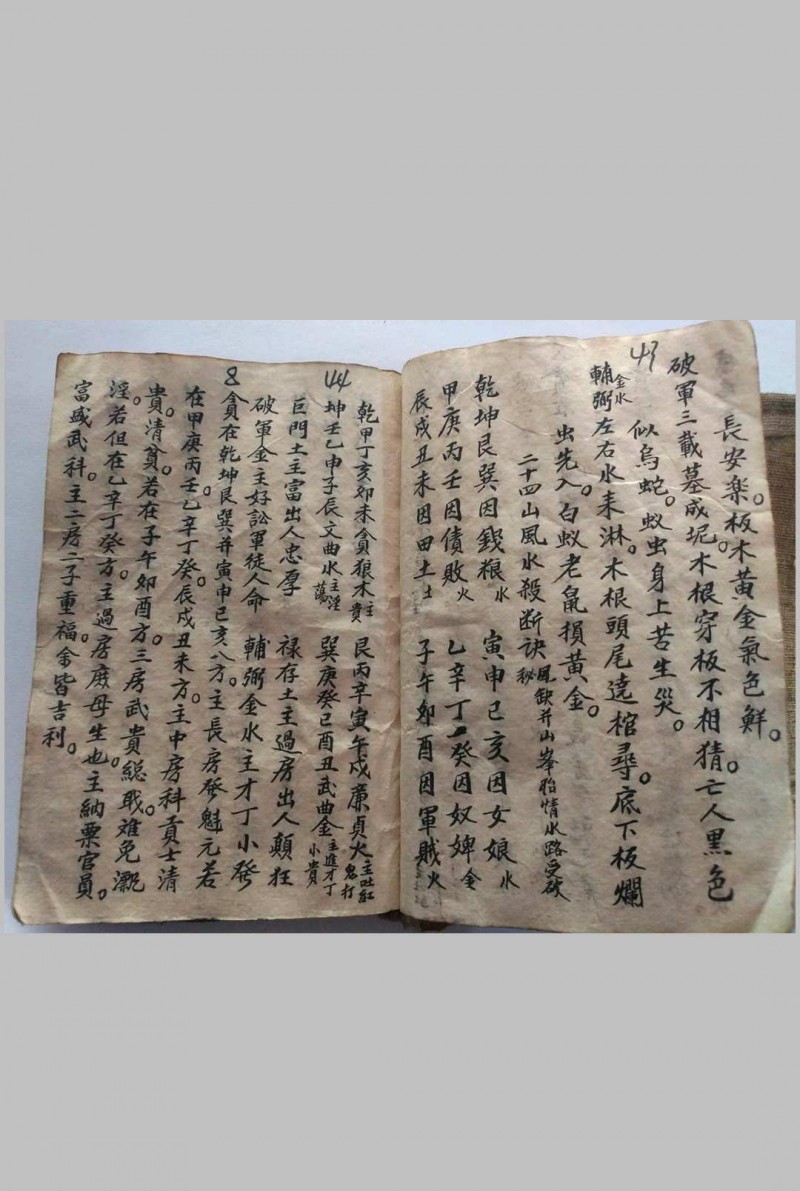 43
長安楽。板木黃金氣色鮮。
破軍三載墓成坭。木根穿板不相猜。亡人黑色
似烏蛇。蚁虫身上苦生災。
輔弼金水左右水来淋。木根頭尾遶棺尋。底下板爛
虫先入。白蚁老鼠損黃金。
二十四山風水殺断訣秘 風缺并山峯胎情水路受破
乾坤艮巽因錢狼水 寅申巳亥因女娘水
甲庚丙壬因債敗火 乙辛丁癸因奴婢金
辰戌丑未因田土土 子午卯酉因軍賊火
44
乾甲丁亥卯未貪狼木主貴 艮丙辛寅午戌廉貞火主吐紅 打
坤壬乙申子辰文曲水主淫蕩 巽庚癸巳酉丑武曲金主進才丁小貴
巨門土主富出人忠厚 禄存土主過房出人顛狂
破軍金主好訟軍徒人命 輔弼金水主才丁小發
8
貪在乾坤艮巽并寅申巳亥八方。主長房發魁元若
在甲庚丙壬乙辛丁癸。辰戌丑未方。主中房科貢士清
貴。清貧。若在子午卯酉方。三房武貴総戢。难免
淫。若但在乙辛丁癸方。主過房庶母生也。主納粟官員。
富盛武科。主二房二子重福。皆吉利。